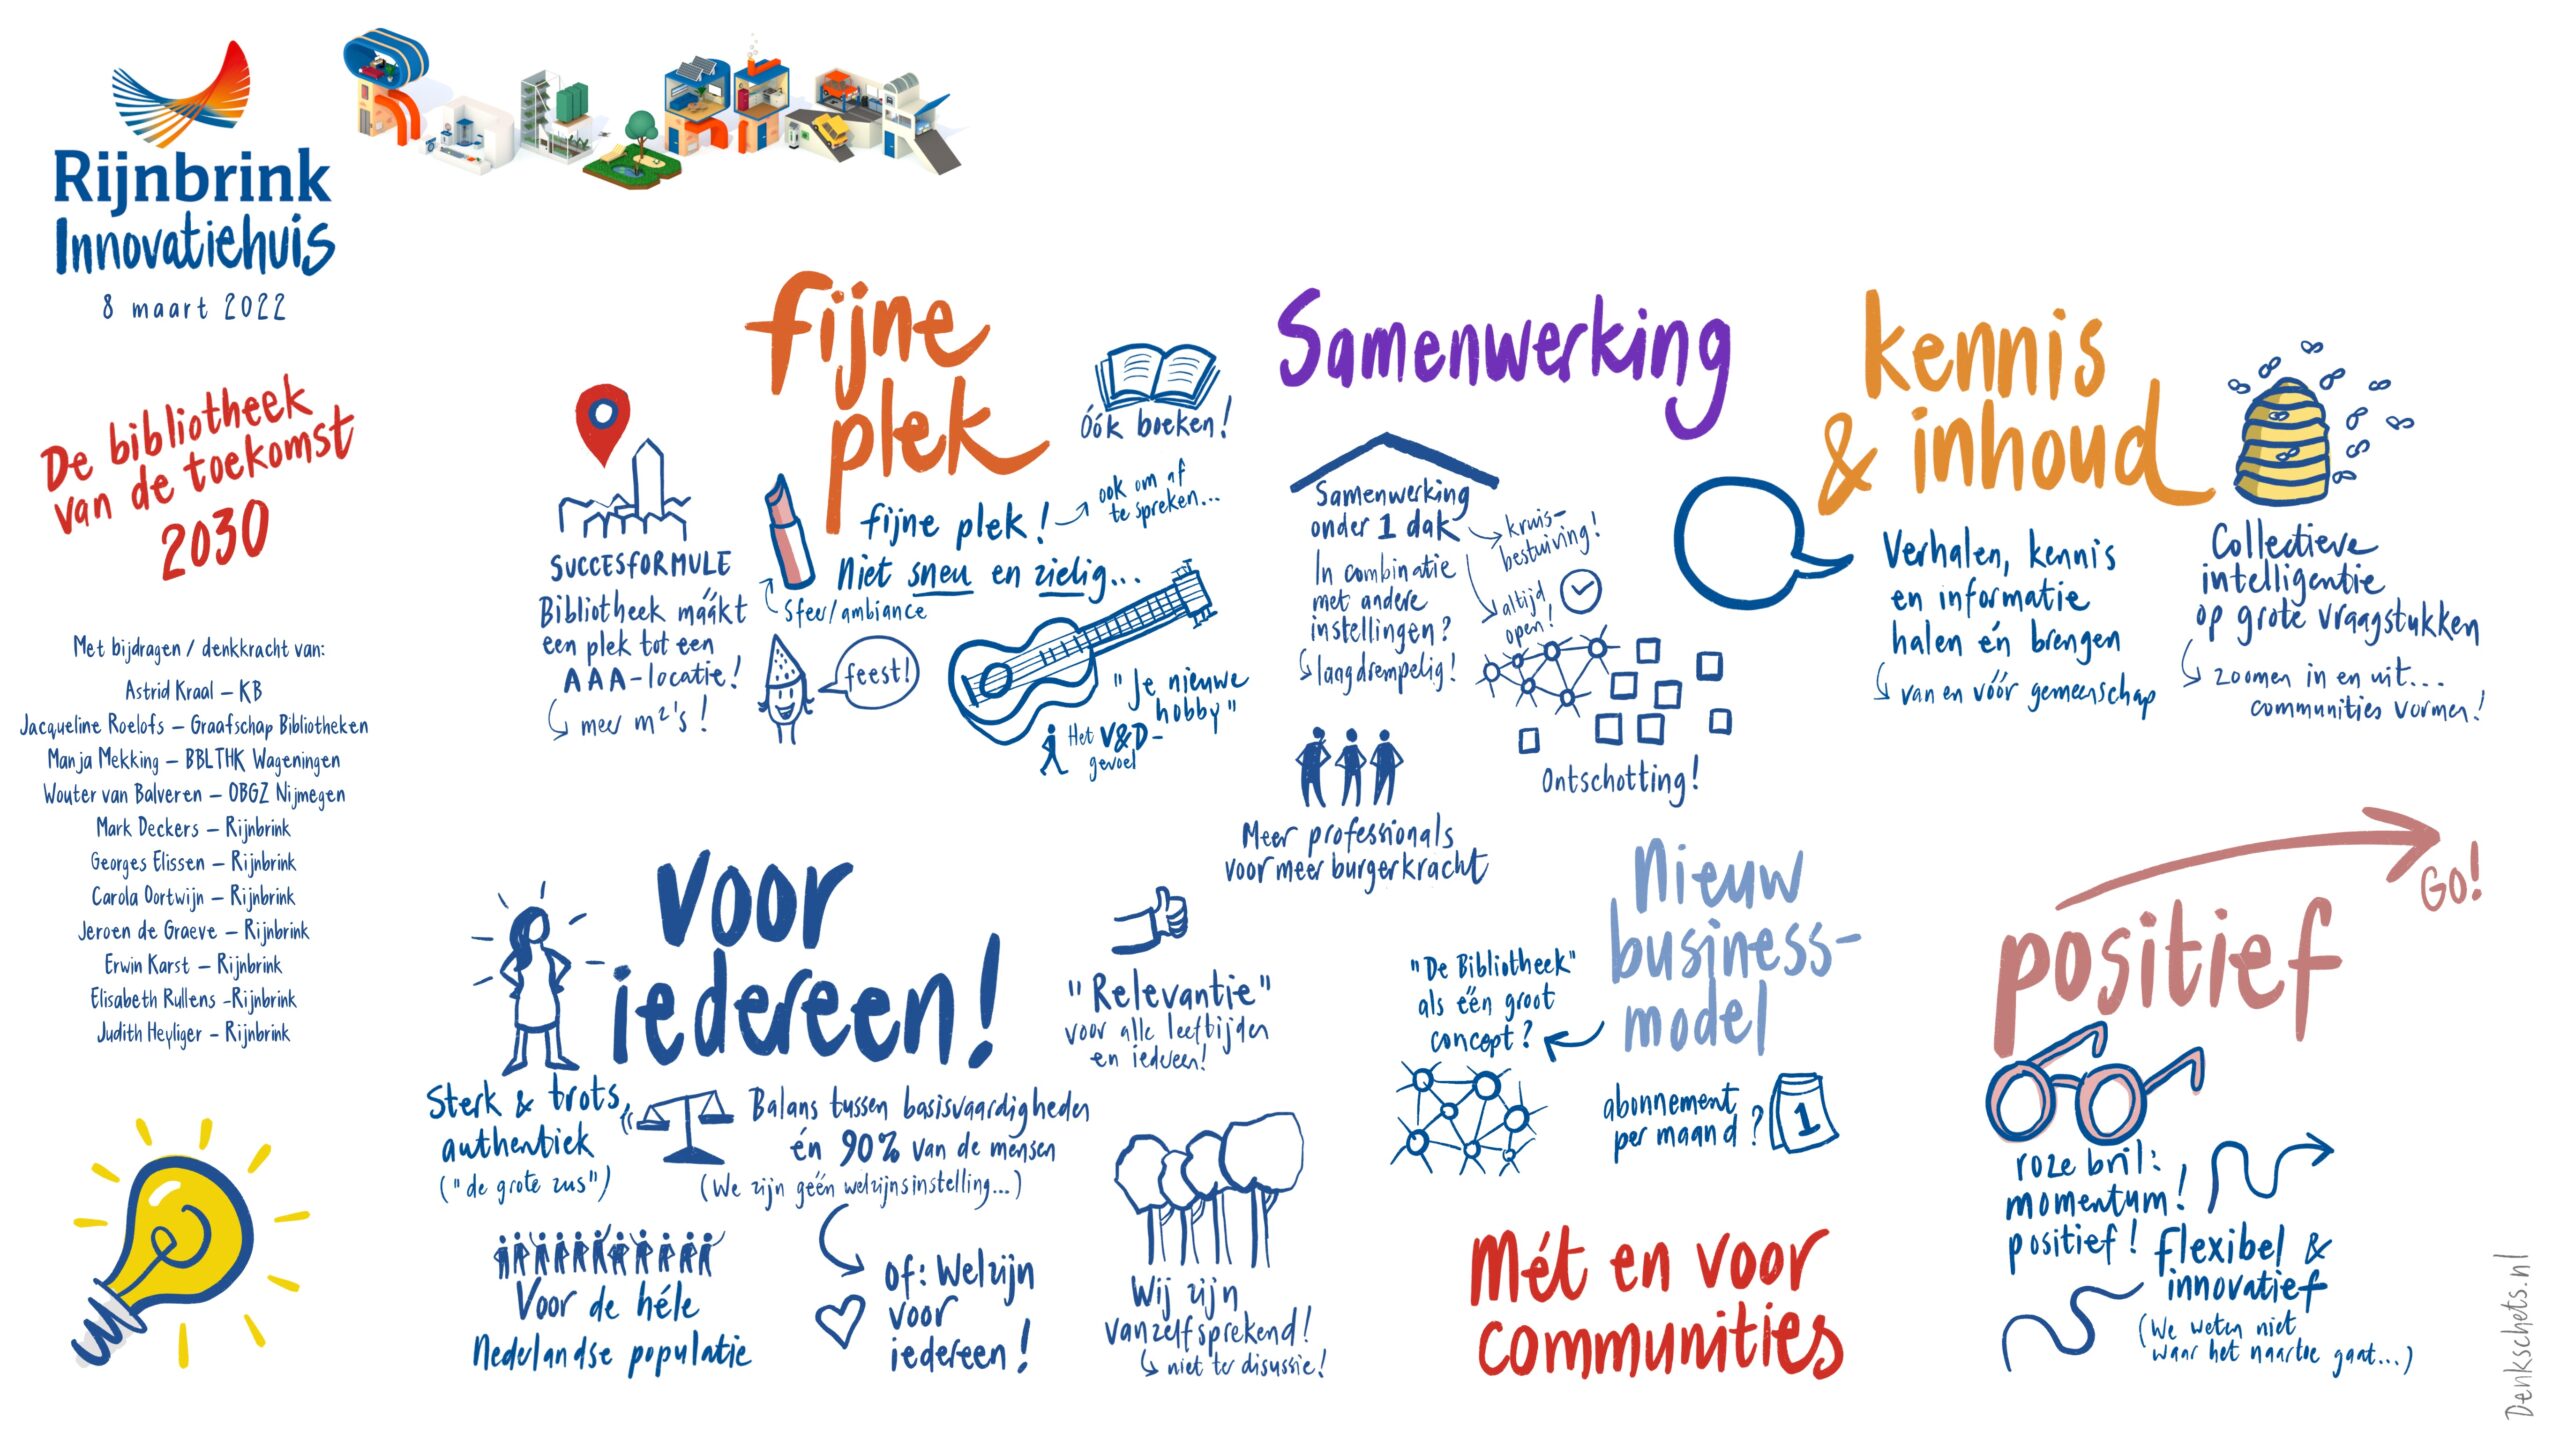 Rijnbrink
Innovatiehuis
8 maart 2022
RIJNBRINK
De bibliotheek
van de toekomst
2030
Met bijdragen / denkkracht van:
Astrid Kraal – KB
Jacqueline Roelofs – Graafschap Bibliotheken
Manja Mekking – BBLTHK Wageningen
Wouter van Balveren – OBGZ Nijmegen
Mark Deckers – Rijnbrink
Georges Elissen – Rijnbrink
Carola Oortwijn – Rijnbrink
Jeroen de Graeve – Rijnbrink
Erwin Karst – Rijnbrink
Elisabeth Rullens -Rijnbrink
Judith Heyliger – Rijnbrink
fijne
plek
SUCCESFORMULE
Bibliotheek máákt
een plek tot een
AAA-locatie!
meer m²'s!
Óók boeken!
fijne plek!
ook om af
te spreken...
Niet sneu en zielig...
sfeer/ambiance
feest!
"Je nieuwe
hobby"
Het V&D-
gevoel
Samenwerking
Samenwerking
onder 1 dak
kruis-
bestuiving!
altijd
open!
In combinatie
met andere
instellingen?
laagdrempelig!
Ontschotting!
Meer professionals
voor meer burgerkracht
kennis
& inhoud
Verhalen, kennis
en informatie
halen én brengen
van en vóór gemeenschap
Collectieve
intelligentie
op grote vraagstukken
zoomen in en uit...
communities vormen!
voor
iedereen!
Sterk & trots,
authentiek
("de grote zus")
Balans tussen basisvaardigheden
én 90% van de mensen
(We zijn géén welzijnsinstelling...)
of: Welzijn
voor
iedereen!
Voor de héle
Nederlandse populatie
"Relevantie"
voor alle leeftijden
en iedereen!
Wij zijn
vanzelfsprekend!
niet ter disussie!
Nieuw
business-
model
"De Bibliotheek"
als één groot
concept?
abonnement
per maand?
1
Mét en voor
communities
positief
GO!
roze bril:
momentum!
positief!
flexibel &
innovatief
(We weten niet
waar het naartoe gaat...)
Denkschets.nl